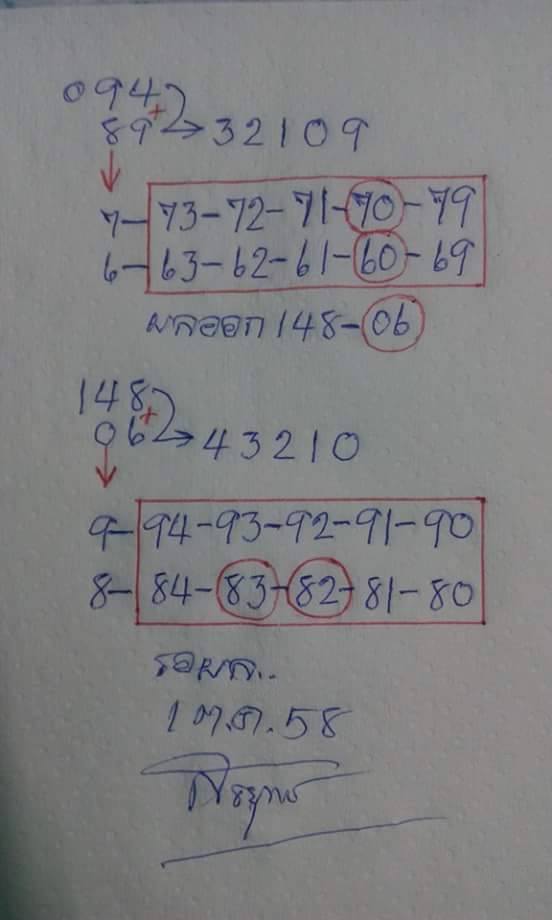 094
+
89 → 32109
7- 73-72-71-70-79
6- 63-62-61-60-69
ผลออก 148-06
148
+
06 → 43210
9- 94-93-92-91-90
8- 84-83-82-81-80
รอผล..
1 ต.ค. 58